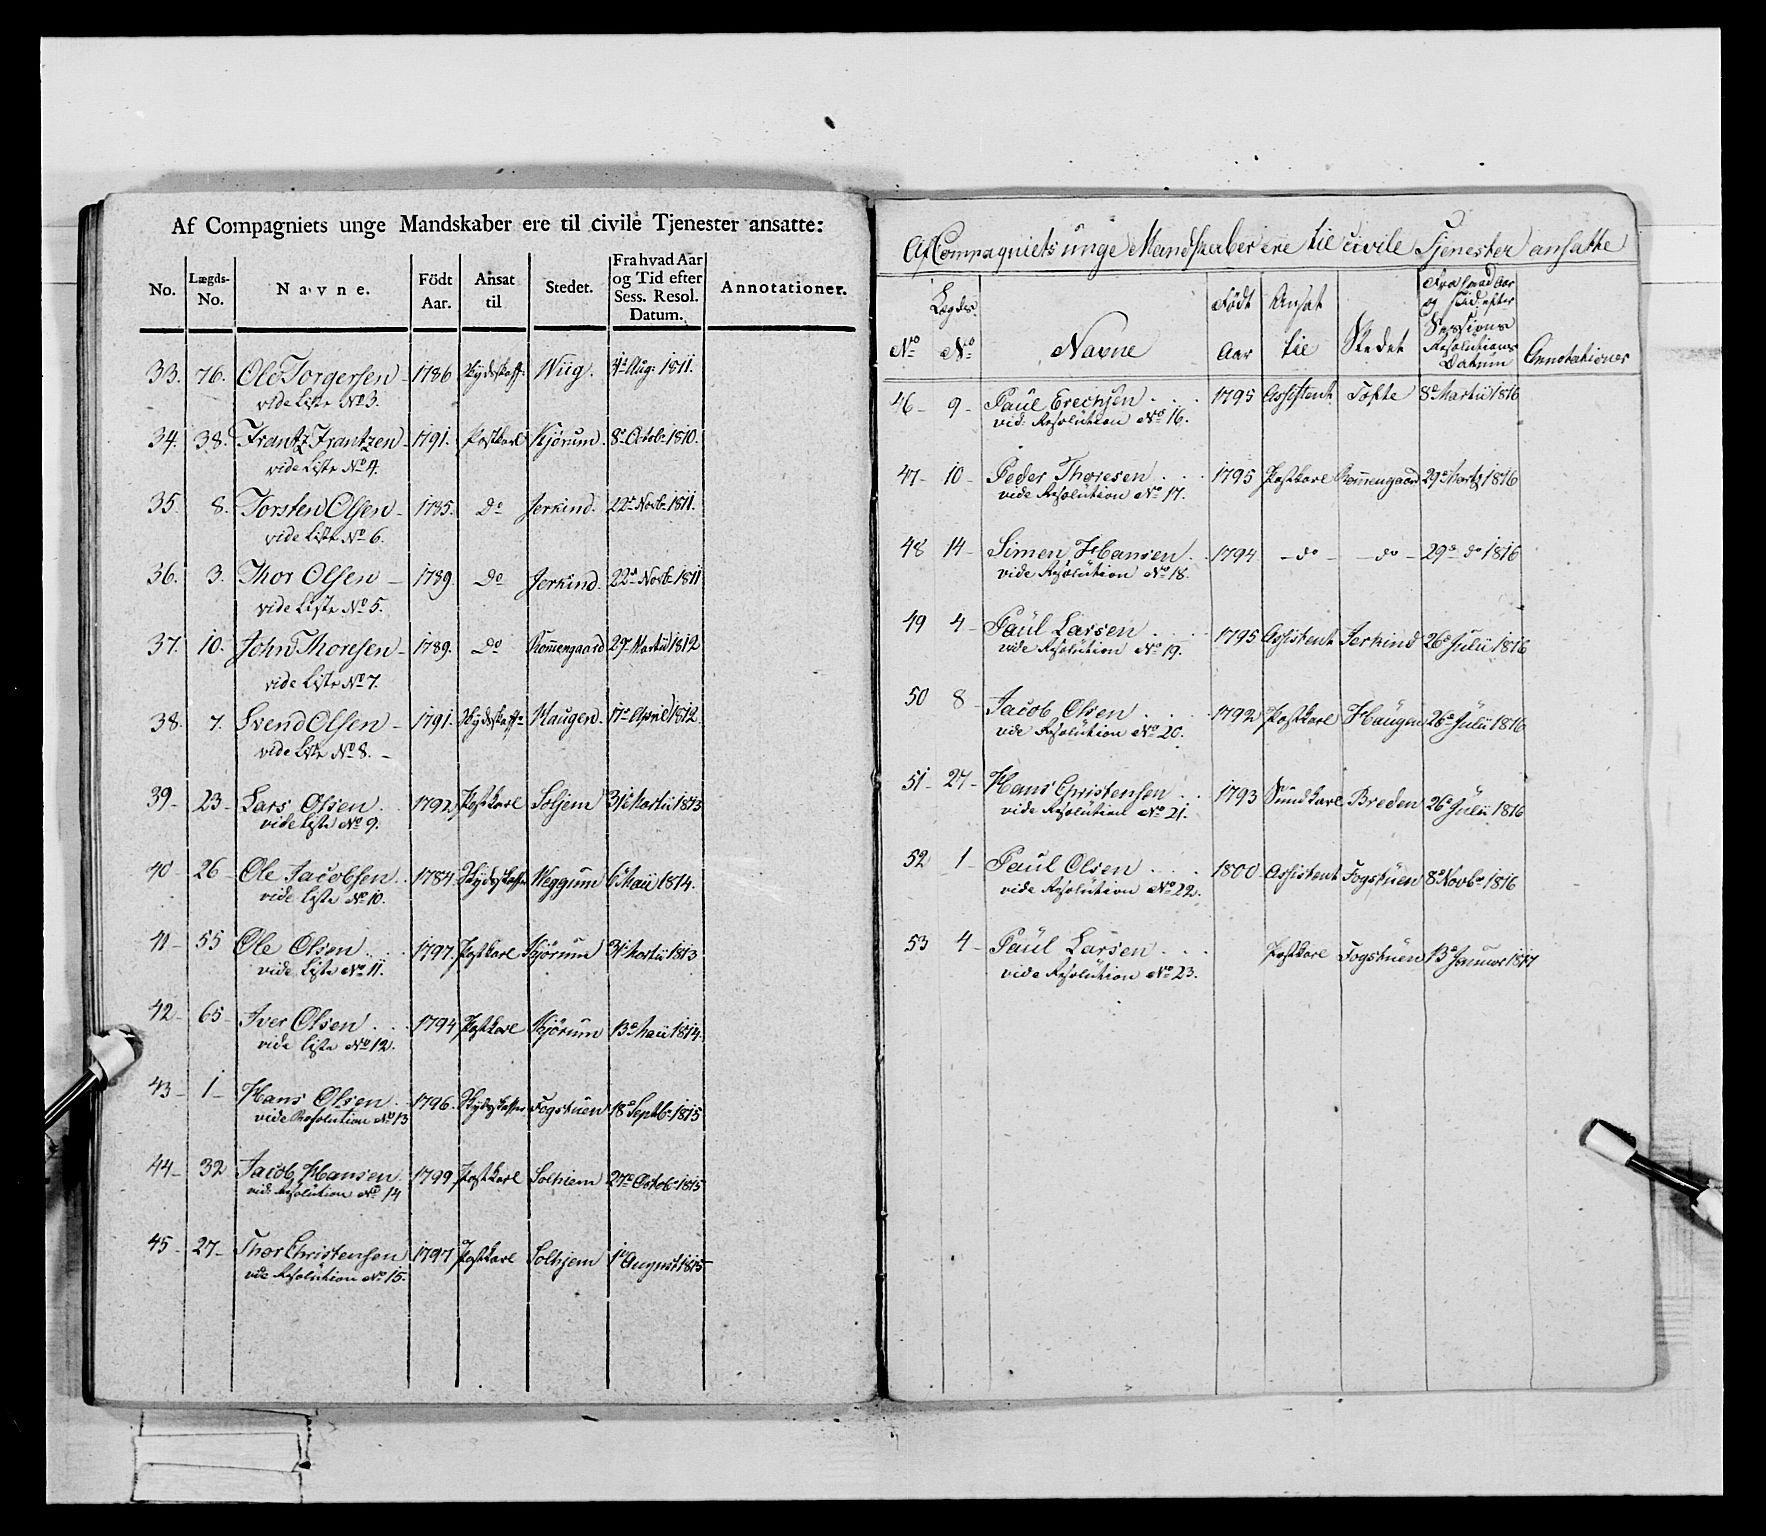 Af Compagniets unge Mandskaber ere til civile Tjenester ansatte:
No. Lægds-No. Navne. Födt Aar. Ansat til Stedet. Fra hvad Aar og Tid efter Sess. Resol. Datum. Annotationer.
33. 76. Ole Torgersen 1786 Skydsskaff: Wiig. Aug: 1811.
vide Liste No 3.
34. 38. Frantz Frantzen 1791. Postkarl Kjörum. 8de Octob: 1810.
vide Liste No 4.
35. 8. Torsten Olsen 1785. do Jerkind. 22de Novb: 1811.
vide Liste No 6.
36. 3. Thor Olsen 1789. do Jerkind. 22de Novb: 1811
vide Liste No 5.
37. 10. John Thoresen 1789. do Rommengaard 29 Martii 1812
vide Liste No 7.
38. 7. Svend Olsen 1791. Skydsskaff: Haugen. 17de April 1812.
vide Liste No 8.
39 23 Lars Olsen 1792. Postkarl Soljem 31te Martii 1813
vide liste No 9.
40 26 Ole Jacobsen 1784. Skydsskaffer Weggum 6te Maii 1814.
vide liste No 10.
41 55 Ole Olsen 1797. Postkarl Kjörum 31te Martii 1813
vide Liste No 11.
42 65 Iver Olsen 1794 Postkarl Kjörum 13de Maii 1814.
vide liste No 12.
43 1 Hans Olsen 1796. Skydsskaffer Fogstuen 18de Septb: 1815
vide Resolution No 13
44 32 Jacob Hansen 1799 Postkarl Solhiem 27de Octob: 1815
vid: Resolution No 14
45 27 Thor Christensen 1797 Postkarl Solhjem 1te August 1815
vide Resolution No 15.
Af Compagniets unge Mandskaber ere til civile Tjenester ansatte
No Lægds No Navne Födt Aar Ansat til Stedet Fra hvad Aar og Tid efter Sessions Resolutions Datum Annotationer
46 9 Paul Erechsen 1795 Assistent Tofte 8de Martii 1816
vid: Resolution No 16.
47 10 Peder Thoresen 1795 Postkarl Rommengaard 29de Marts 1816
vide Resolution No 17.
48 14 Simen Hansen 1794 do do 29de do 1816
vide Resolution No 18.
49 4 Paul Larsen 1795 Assistent Jerkind 26de Julii 1816
vide Resolution No 19.
50 8 Jacob Olsen 1792 Postkarl Haugen 26de Julii 1816
vide Resolution No 20.
51 27 Hans Christensen 1793 Sundkarl Breden 26de Julii 1816
vide Resolution No 21.
52 1 Paul Olsen 1800 Assistent Fogstuen 8de Novb: 1816
vide Resolution No 22.
53 4 Paul Larsen Postkarl Fogstuen 13de Januar 1817
vide Resolution No 23.